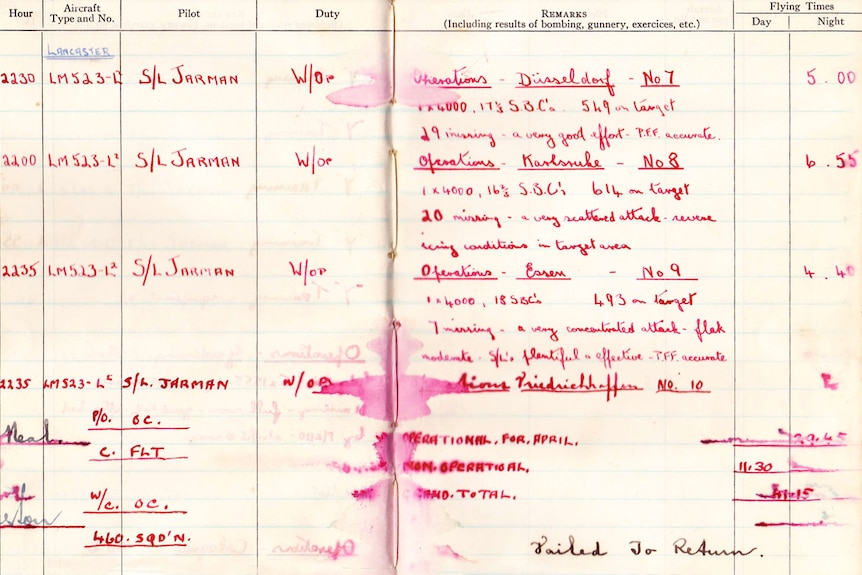 Hour Aircraft Type and No. Pilot Duty REMARKS (Including results of bombing, gunnery, exercices, etc.) Flying Times Day Night
LANCASTER
2230 LM523-L² S/L JARMAN W/OP Operations - Düsseldorf - No 7 5.00
1 x 4000, 17½ S.B.C's. 549 on target
29 missing - a very good effort - P.F.F. accurate.
2200 LM523-L² S/L JARMAN W/OP Operations - Karlsruhe - No 8 6.55
1 x 4000, 16⅔ S.B.C's 614 on target
20 missing - a very scattered attack - severe
icing conditions in target area
2235 LM523-L² S/L JARMAN W/OP Operations - Essen - No 9 4.40
1 x 4000, 18 SBC's 493 on target
7 missing - a very concentrated attack - flak
moderate - S/L's plentiful & effective - P.F.F. accurate
2235 LM523-L² S/L. JARMAN W/OP Friedrichhaffen No. 10
P/O. OC.
OPERATIONAL. FOR. APRIL. 29.45
C. FLT
NON. OPERATIONAL. 11.30
GRAND. TOTAL. 41.15
W/C. OC.
460. SQD'N.
Failed To Return.